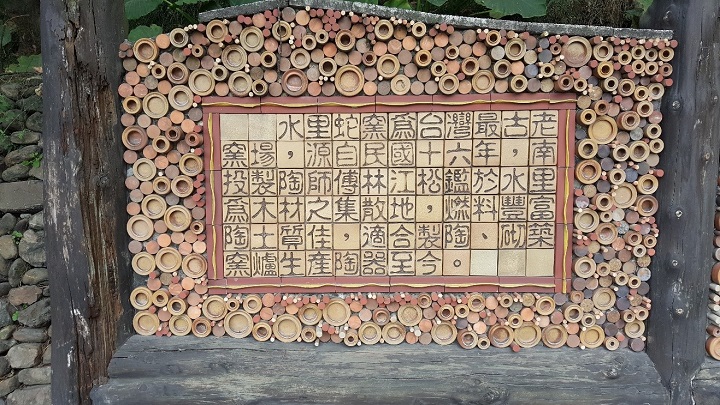 水里蛇窯為台灣最古老
窯場，源自民國十六年，南
投製陶師傅林江松鑑於水里
為木材之集散地，燃料豐富
陶土質佳，適合製陶、砌築
窯爐生產陶器至今。